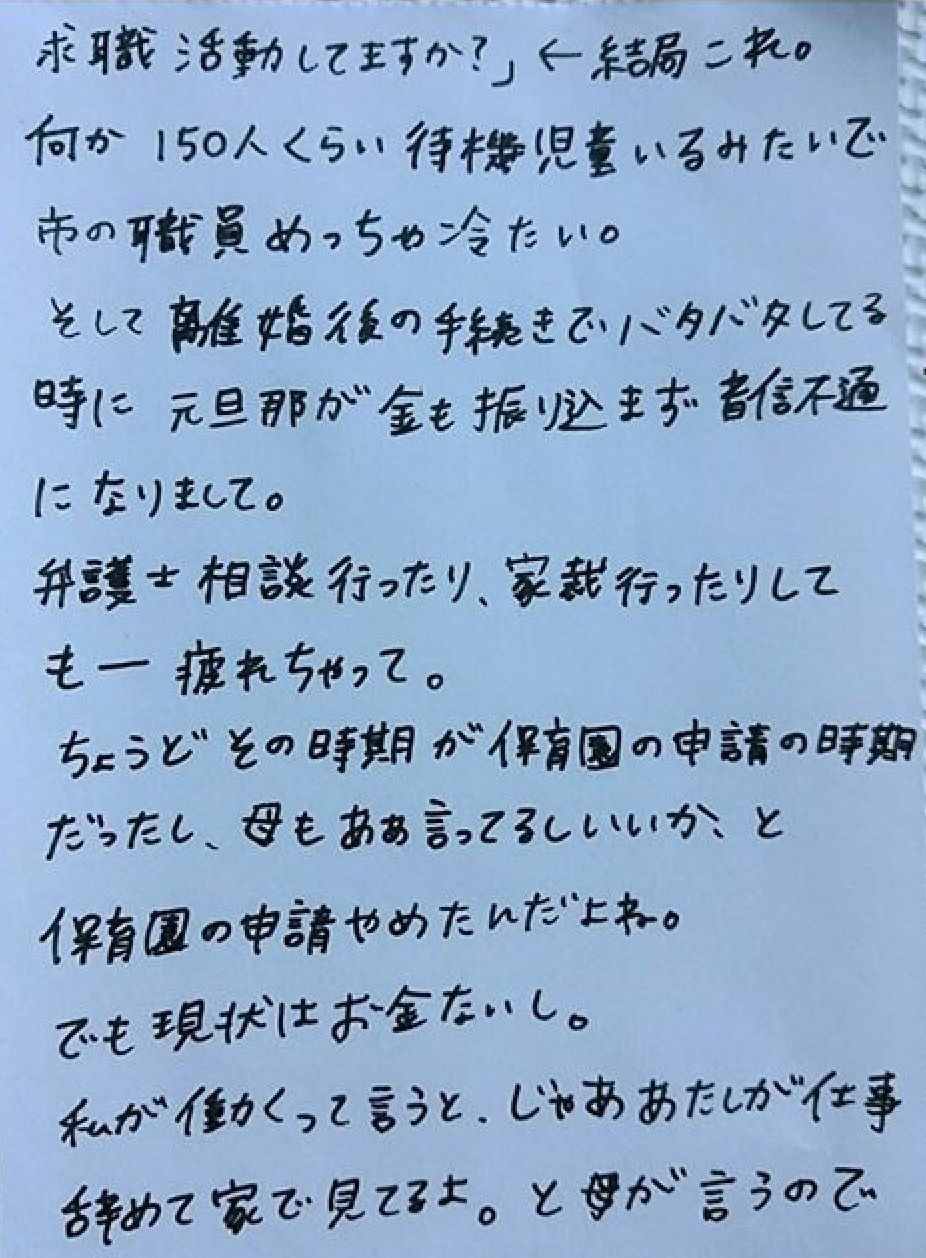 求職活動してますか?」←結局これ。
何か150人くらい待機児童いるみたいで
市の職員めっちゃ冷たい。
そして離婚後の手続きでバタバタしてる
時に元旦那が金も振り込まず音信不通
になりまして。
弁護士相談行ったり、家裁行ったりして
もー疲れちゃって。
ちょうどその時期が保育園の申請の時期
だったし、母もあぁ言ってるしいいか、と
保育園の申請やめたんだよね。
でも現状はお金ないし。
私が働くって言うと、じゃああたしが仕事
辞めて家で見てるよ。と母が言うので